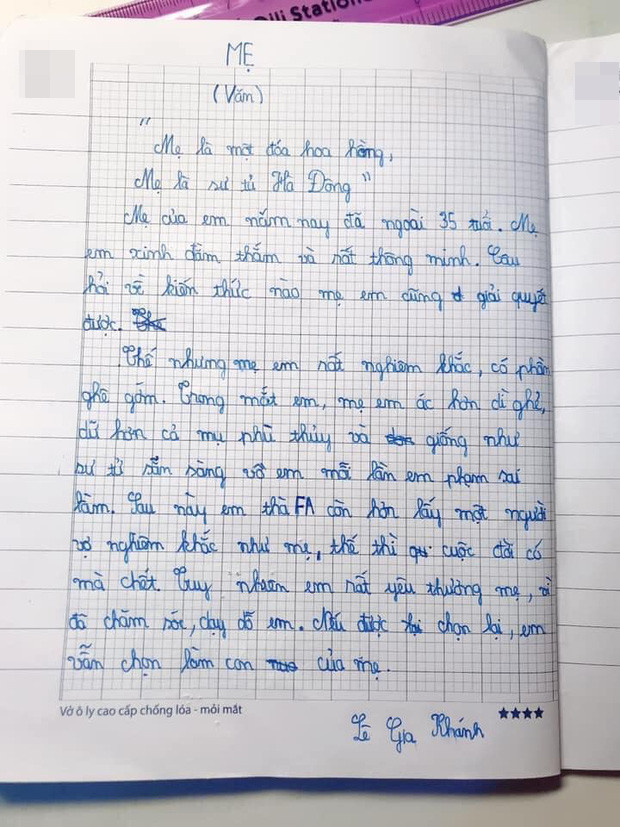 Qili Station
MẸ
(Văn)
"
Mẹ là một đóa hoa hồng,
Mẹ là sư tử Hà Đông"
Mẹ của em năm nay đã ngoài 35 tuổi. Mẹ
em xinh đằm thắm và rất thông minh. Câu
hỏi về kiến thức nào mẹ em cũng giải quyết
được.
Thế nhưng mẹ em rất nghiêm khắc, có phần
ghê gớm. Trong mắt em, mẹ em ác hơn dì ghẻ,
dữ hơn cả mụ phù thủy và giống như
sư tử sẵn sàng vồ em mỗi lần em phạm sai
lầm. Sau này em thà FA còn hơn lấy một người
vợ nghiêm khắc như mẹ, thế thì cuộc đời có
mà chết. Tuy nhiên em rất yêu thương mẹ, vì
đã chăm sóc, dạy dỗ em. Nếu được chọn lại, em
vẫn chọn làm con của mẹ.
Vở ô ly cao cấp chống lóa - mỏi mắt
★★★★
Lê Gia Khánh